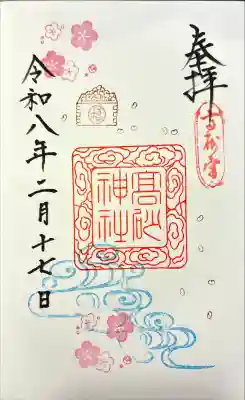 奉拝
高砂
神社
令和八年二月十七日